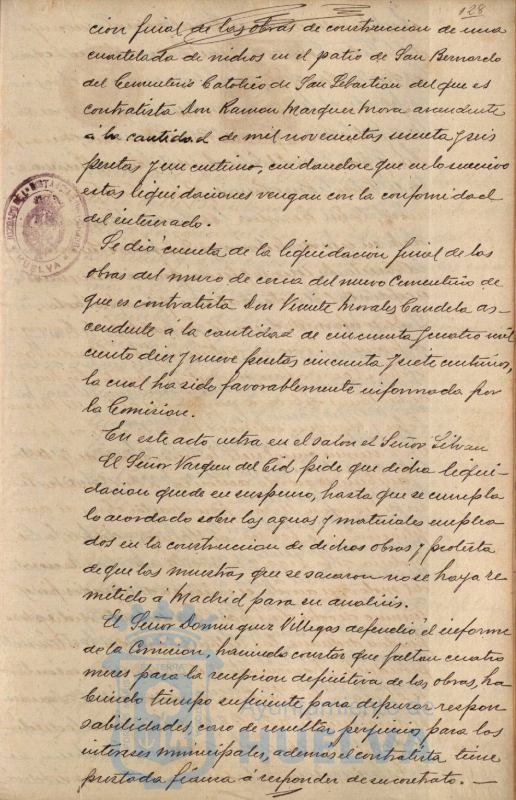 128
cion final de las obras de construccion de una
cuartelada de nichos en el patio de San Bernardo
del Cementerio Catolico de San Sebastian del que es
contratista Don Ramon Marquez Mora ascendente
á la cantidad de mil novecientas cuenta y seis
pesetas y un centimo, cuidandose que en lo sucesivo
estas liquidaciones vengan con la conformidad
del interesado.
Se dió cuenta de la liquidacion final de las
obras del muro de cerca del nuevo Cementerio de
que es contratista Don Vicente Morales Candela as-
cendente a la cantidad de cincuenta y cuatro mil
ciento diez y nueve pesetas cincuenta y siete centimos,
la cual ha sido favorablemente informada por
la Comision.
En este acto entra en el salon el Señor
El Señor Vazquez del Cid pide que dicha liqui-
dacion quede en suspenso, hasta que se cumpla
lo acordado sobre las aguas y materiales emplea-
dos en la construccion de dichas obras y protesta
de que las muestras que se sacaron no se haya re-
mitido á Madrid para su analisis.
El Señor Dominguez Villegas defendió el informe
de la Comision, haciendo constar que faltan cuatro
meses para la recepcion definitiva de las obras, ha-
biendo tiempo suficiente para depurar respon-
sabilidades caso de resultar perjuicios para los
intereses municipales, ademas el contratista tiene
prestada fianza á responder de su contrato.
HUELVA